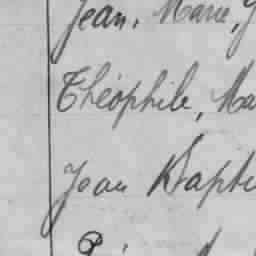 Jean, Marie, J
Théophile, Ma
Jean Bapti